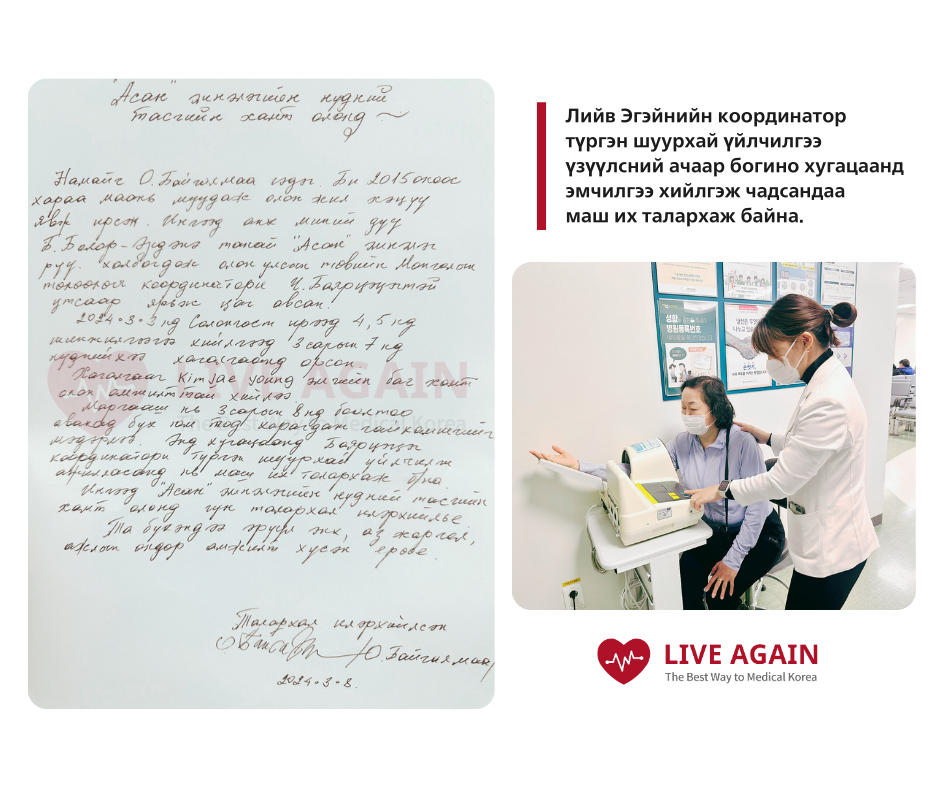 "Асан" эмнэлгийн нүдний
тасгийн хамт олонд
Намайг О.Байгалмаа гэдэг. Би 2015 оноос
хараа маань муудаж олон жил хэцүү
явж ирсэн. Ингээд анх миний дүү
Б.Болор-Эрдэнэ танай "Асан" эмнэлэг
рүү холбогдож олон улсын төвийн Монголын
координатори Ц.Баярцэцэгтэй
утсаар ярьж цаг авсан.
2024.3.3нд Солонгост ирээд 4,5 нд
шинжилгээгээ хийлгээд 3 сарын 7 нд
нүднийхээ хагалгаанд орсон.
Хагалгааг Kim Jae young эмчийн баг хамт
олон амжилттай хийлээ.
Маргааш нь 3 сарын 8нд боолтоо
авахад бүх юм тод харагдаж гайхамшгийг
мэдэрлээ. Энд хугацаанд Баярцэцэг
координатори түргэн шуурхай үйлчилж
ажилласанд нь маш их талархаж б/на.
Ингээд "Асан" эмнэлгийн нүдний тасгийн
хамт олонд гүн талархал илэрхийлье.
Та бүхэндээ эрүүл энх, аз жаргал,
ажлын өндөр амжилт хүсэн ерөөе.
Талархал илэрхийлсэн
О.Байгалмаа
2024.3.8.
LIVE AGAIN
The Best Way to Medical Korea
Лийв Эгэйнийн координатор
түргэн шуурхай үйлчилгээ
үзүүлсний ачаар богино хугацаанд
эмчилгээ хийлгэж чадсандаа
маш их талархаж байна.
성함
병원등록번호
LIVE AGAIN
The Best Way to Medical Korea